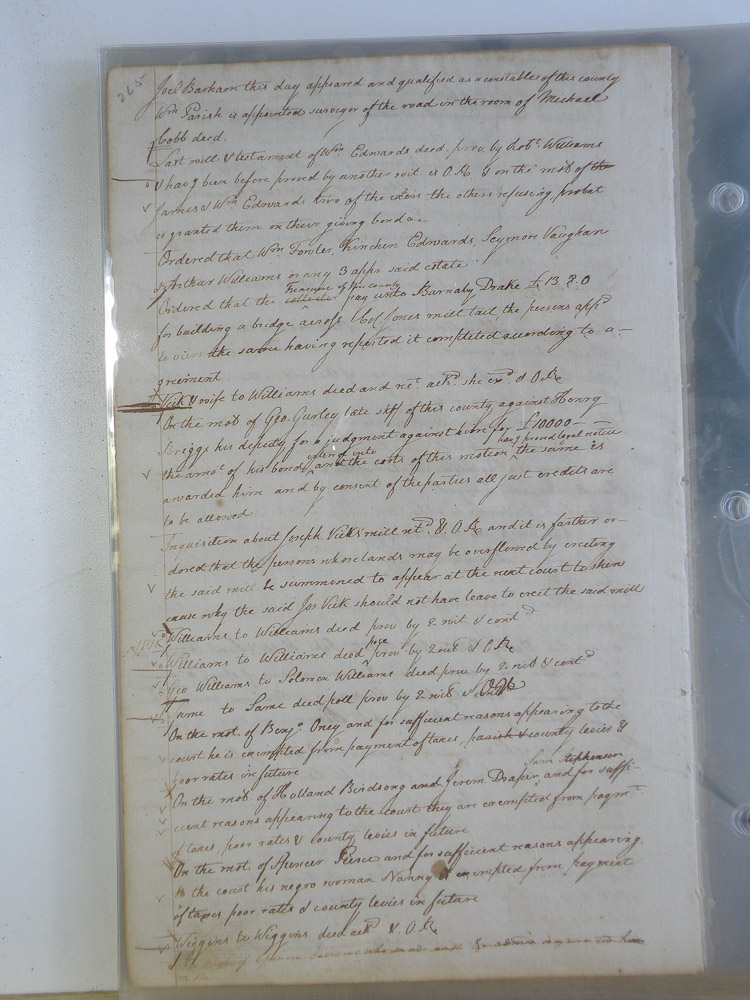 265
Joel Barham this day appeared and qualified as a constable of this county
Wm Parish is appointed surveyor of the road in the room of Michael
Cobb decd.
Last will & testament of Wm Edwards decd. prov. by Robt. Williams
& havg been before proved by another wit. is O.R. & on the mot of
James & Wm Edwards two of the the others refusing, probat
is granted them on their giving bond &c
Ordered that Wm Fowler, Kinchen Edwards, Seymore Vaughan
& Arthur Williams or any 3 appr. said estate
Ordered that the Treasurer of this county pay unto Barnaby Drake £13.8.0
for building a bridge across Col Jones mill tail, the persons appd
to view the same having reported it completed according to a-
greement
Vick & wife to Williams deed and ackd. she exd. & O.R.
On the mot of Geo. Gurley late shff of this county against Henry
Briggs his deputy for a judgment against him for £10000-
the amot of his bond and the costs of this motion havg proved legal notice the same is
awarded him and by consent of the parties all just credits are
to be allowed
Inquisition about Joseph Vick's mill retd. & O.R. and it is farther or-
dered that the persons whose lands may be overflowed by erecting
the said mill be summoned to appear at the next court to shew
cause why the said Jos Vick should not have leave to erect the said mill
Williams to Williams deed prov by 2 wit & contd
Williams to Williams deed prov by 2 wit & O.R.
Geo Williams to Solomon Williams deed prov by 2 wit & contd
Same to Same deed poll prov by 2 wit &
On the mot. of Benja Oney and for sufficient reasons appearing to the
court he is exempted from payment of taxes, parish & county levies &
poor rates in future
On the mot of Holland Birdsong and Jerem. Draper Sam Stephenson and for suffi-
cient reasons appearing to the court they are exempted from paymt
of taxes, poor rates & county levies in future
On the mot. of Spencer Pierce and for sufficient reasons appearing
to the court his negro woman Nanny is exempted from payment
of taxes poor rates & county levies in future
Wiggins to Wiggins deed ackd & O.R.